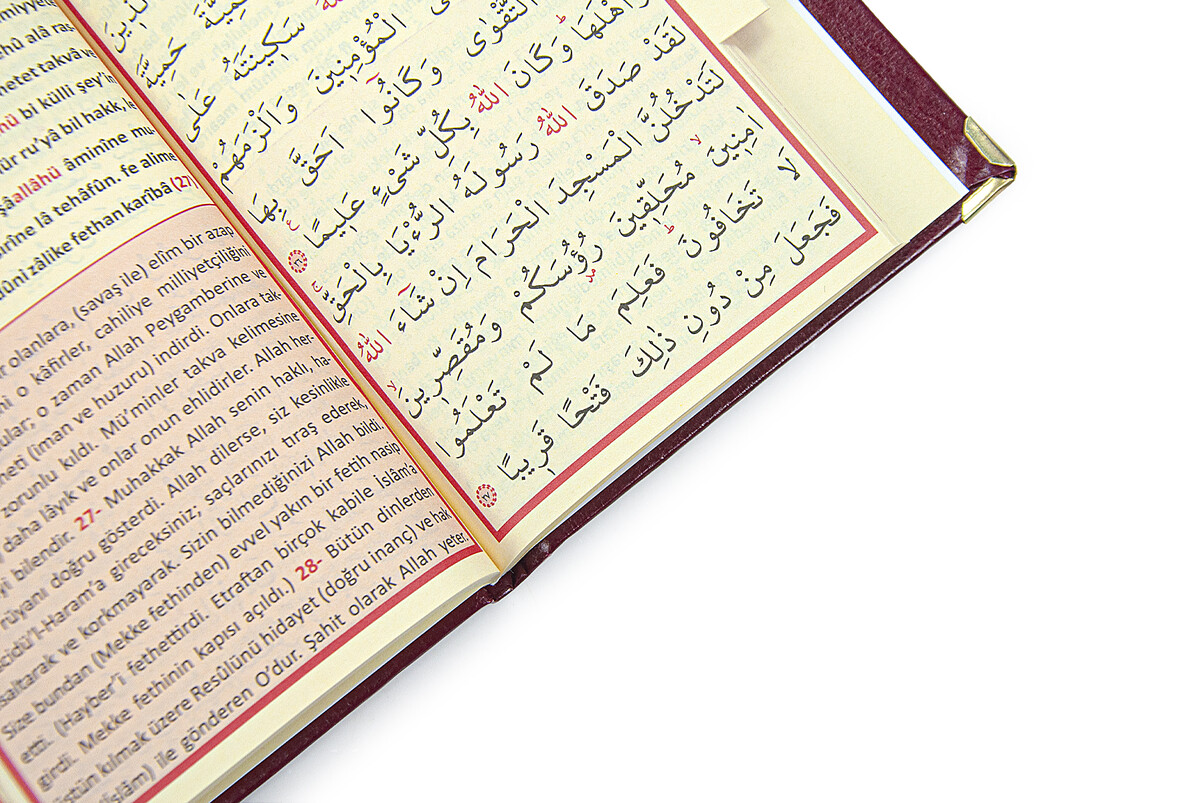 hû alâ
metet takvâ ve
bi külli şey'in
ru'yâ bil hakk, le
şâallâhü âminîne mu
rîne lâ tehâfûn. fe alime
dûni zâlike fethan karîbâ (27)
olanlara, (savaş ile) elîm bir azap
o kâfirler, cahiliye milliyetçiliğini
o zaman Allah Peygamberine ve
(iman ve huzuru) indirdi. Onlara tak-
zorunlu kıldı. Mü'minler takva kelimesine
daha lâyık ve onlar onun ehlidirler. Allah her-
bilendir. 27- Muhakkak Allah senin haklı, ha-
rüyanı doğru gösterdi. Allah dilerse, siz kesinlikle
scidü'l-Haram'a gireceksiniz; saçlarınızı tıraş ederek,
saltarak ve korkmayarak. Sizin bilmediğinizi Allah bildi.
Size bundan (Mekke fethinden) evvel yakın bir fetih nasip
etti. (Hayber'i fethettirdi. Etraftan birçok kabile İslâm'a
girdi. Mekke fethinin kapısı açıldı.) 28- Bütün dinlerden
üstün kılmak üzere Resûlünü hidayet (doğru inanç) ve hak
(İslâm) ile gönderen O'dur. Şahit olarak Allah yeter.
حَمِيَّةَ
سَكِينَتَهُ عَلٰى
الْمُؤْمِنِينَ وَاَلْزَمَهُمْ
التَّقْوٰى وَكَانُٓوا اَحَقَّ بِهَا
وَاَهْلَهَا وَكَانَ اللّٰهُ بِكُلِّ شَىْءٍ عَلِيمًا ﴿٢٦﴾
لَقَدْ صَدَقَ اللّٰهُ رَسُولَهُ الرُّءْيَا بِالْحَقِّ
لَتَدْخُلُنَّ الْمَسْجِدَ الْحَرَامَ اِنْ شَٓاءَ اللّٰهُ
اٰمِنِينَ مُحَلِّقِينَ رُؤُسَكُمْ وَمُقَصِّرِينَ
لَا تَخَافُونَ فَعَلِمَ مَا لَمْ تَعْلَمُوا
فَجَعَلَ مِنْ دُونِ ذٰلِكَ فَتْحًا قَرِيبًا ﴿٢٧﴾